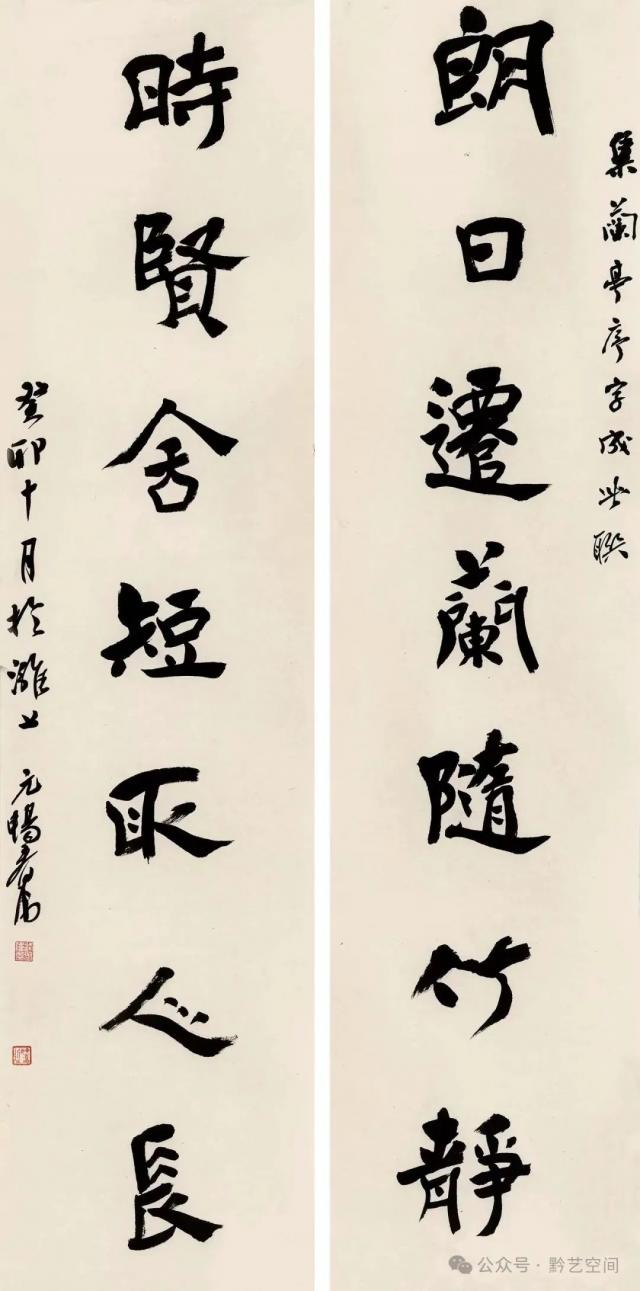 集蘭亭序字成此聯
朗日遷蘭隨竹靜
時賢舍短取人長
癸卯十月於濰上 元暘
公众号·黔艺空间